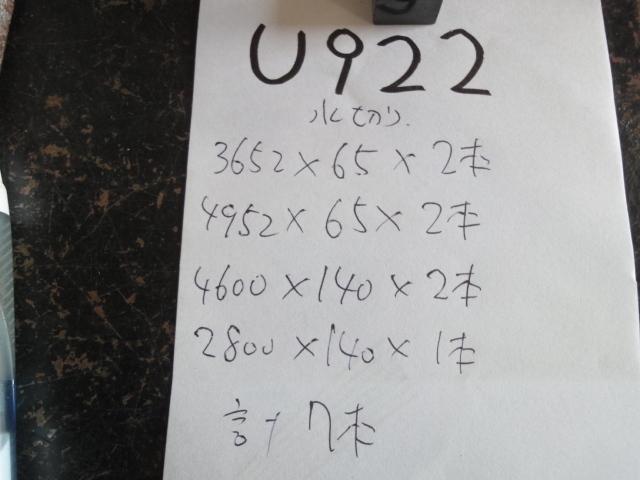 U922
水切り.
3652×65×2本
4952×65×2本
4600×140×2本
2800×140×1本
計 7本